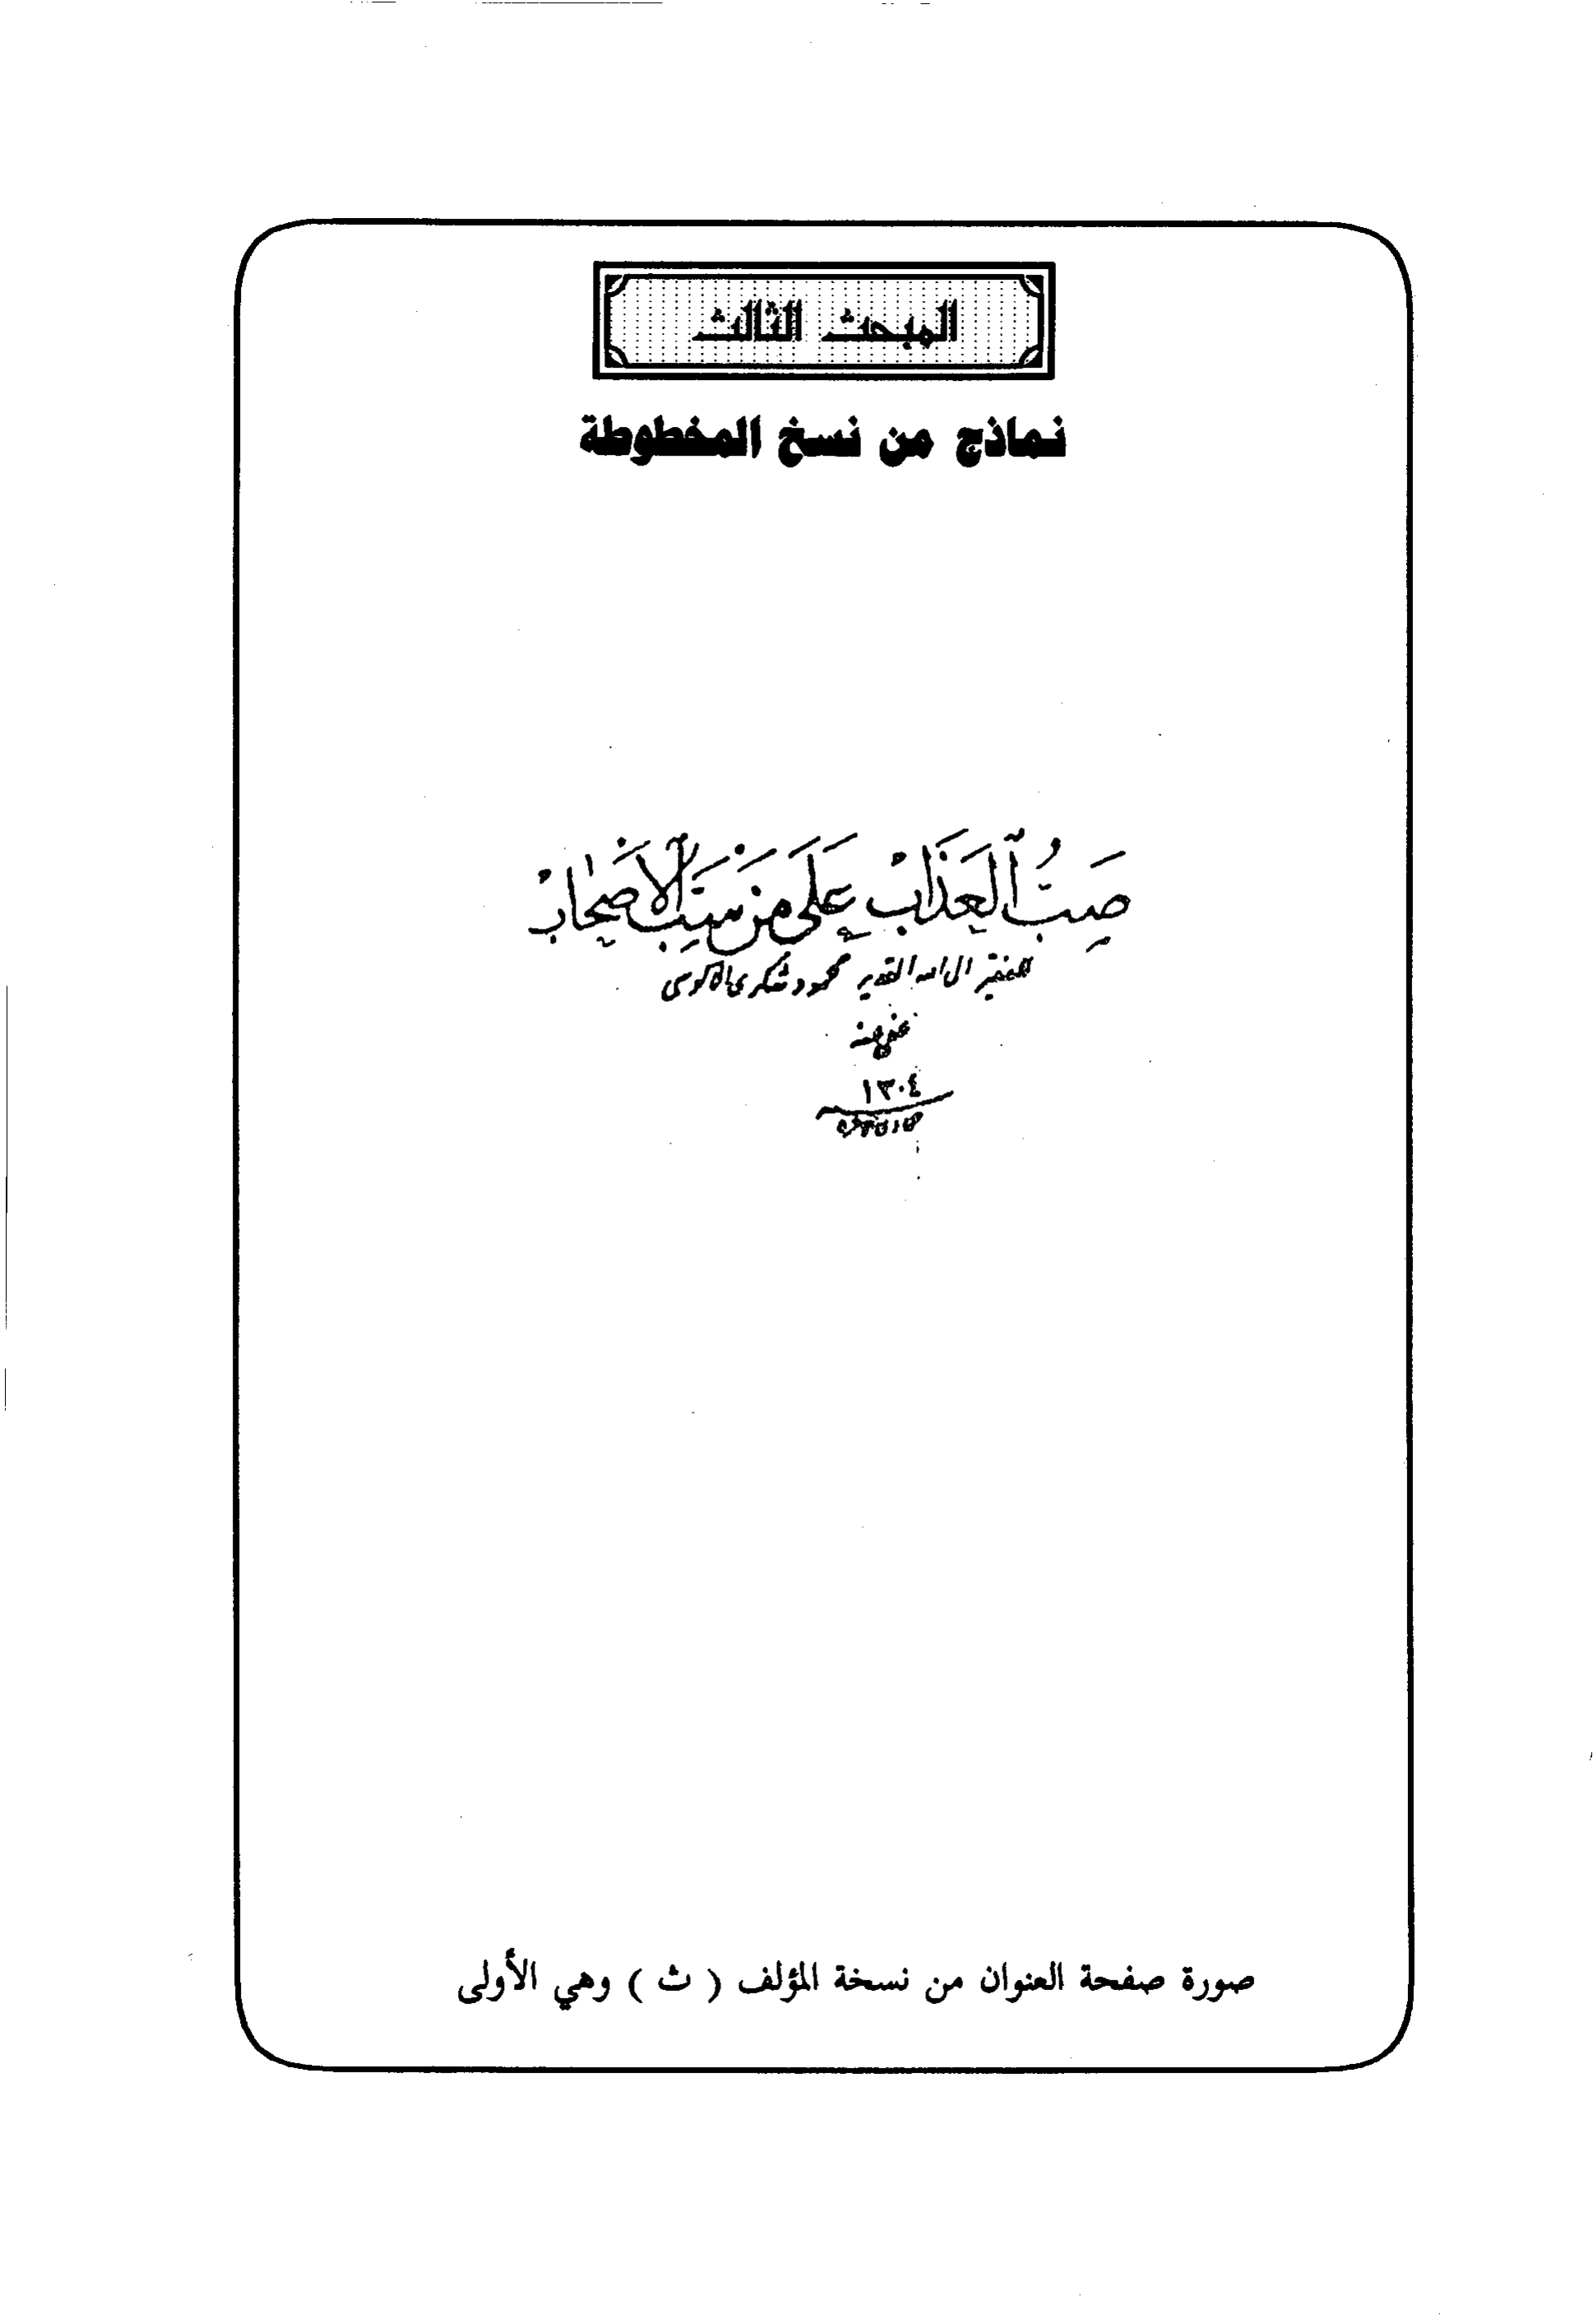 المبحث الثالث
نماذج من نسخ المخطوطة
صَبُّ ٱلعَذَابْ عَلَى مَنْ سَبَّ الأَصْحَابْ
للفقير الى الله القدير محمود شكري الالوسي
عفي عنه
١٣٠٤
صورة صفحة العنوان من نسخة المؤلف ( ث ) وهي الأولى